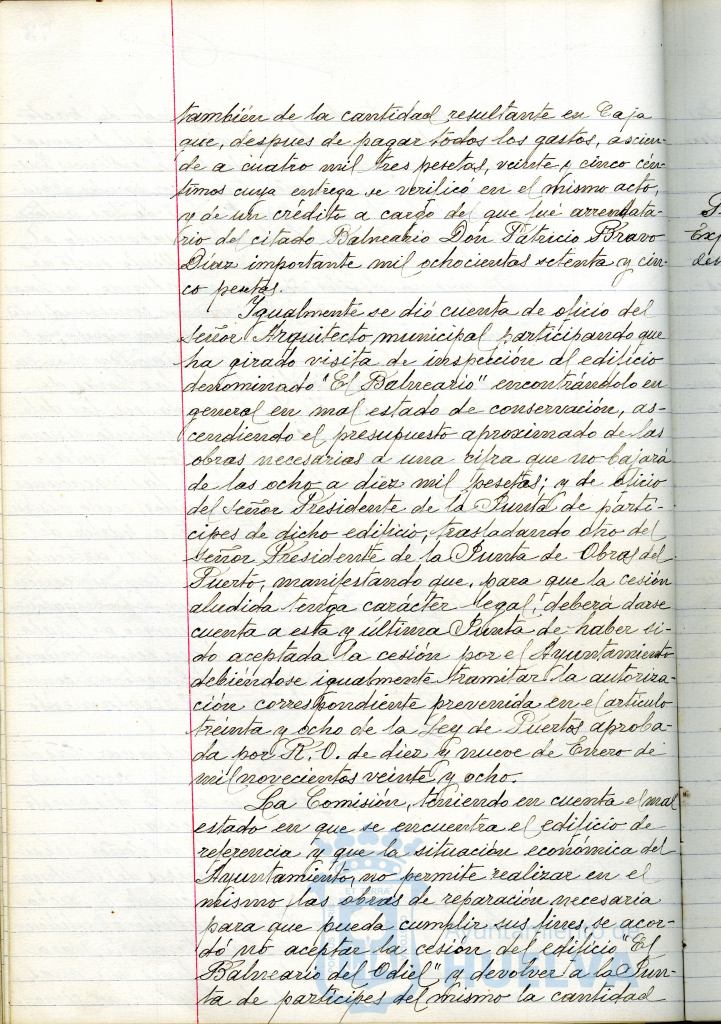 también de la cantidad resultante en Caja
que, despues de pagar todos los gastos, ascien-
de a cuatro mil tres pesetas, veinte y cinco cén-
timos cuya entrega se verificó en el mismo acto,
y de un crédito a cargo del que fué arrendata-
rio del citado Balneario Don Patricio Bravo
Díaz importante mil ochocientas setenta y cin-
co pesetas.
Igualmente se dió cuenta de oficio del
Señor Arquitecto municipal participando que
ha girado visita de inspección al edificio
denominado "El Balneario" encontrándolo en
general en mal estado de conservación, as-
cendiendo el presupuesto aproximado de las
obras necesarias a una cifra que no bajará
de las ocho a diez mil pesetas; y de oficio
del Señor Presidente de la Junta de partí-
cipes de dicho edificio, trasladando otro del
Señor Presidente de la Junta de Obras del
Puerto, manifestando que, para que la cesión
aludida tenga carácter legal, deberá darse
cuenta a esta y última Junta de haber si-
do aceptada la cesión por el Ayuntamiento
debiéndose igualmente tramitar la autoriza-
ción correspondiente prevenida en el artículo
treinta y ocho de la Ley de Puertos aproba-
da por R. O. de diez y nueve de Enero de
mil novecientos veinte y ocho.
La Comisión, teniendo en cuenta el mal
estado en que se encuentra el edificio de
referencia y que la situación económica del
Ayuntamiento, no permite realizar en el
mismo las obras de reparación necesaria
para que pueda cumplir sus fines, se acor-
dó no aceptar la cesión del edificio "El
Balneario del Odiel" y devolver a la Jun-
ta de partícipes del mismo la cantidad
Exp
Ayuntamiento de
HUELVA